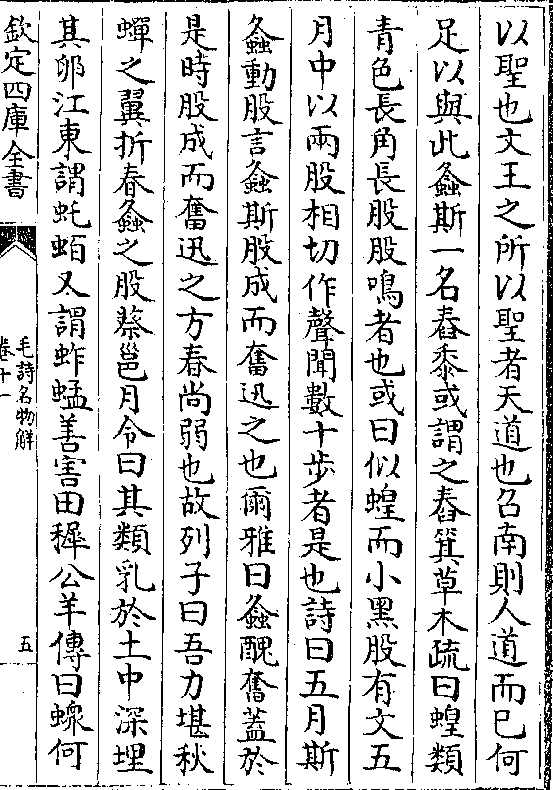 以聖也文王之所以聖者天道也召南則人道而已何
足以與此螽斯一名舂黍或謂之舂箕草木疏曰蝗類
青色長角長股股鳴者也或曰似蝗而小黑股有文五
月中以兩股相切作聲聞數十步者是也詩曰五月斯
螽動股言螽斯股成而奮迅之也爾雅曰螽醜奮蓋於
是時股成而奮迅之方春尚弱也故列子曰吾力堪秋
蟬之翼折春螽之股蔡邕月令曰其類乳於土中深埋
其卵江東謂虴蛨又謂蚱蜢善害田穉公羊傳曰蠓何
欽定四庫全書
毛詩名物解
卷十一
五